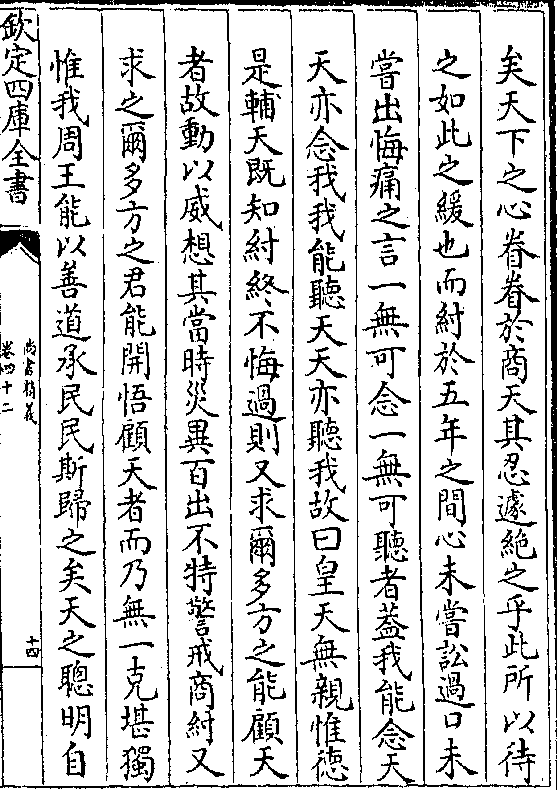 矣天下之心眷眷於商天其忍遽絶之乎此所以待
之如此之緩也而紂於五年之間心未嘗訟過口未
嘗出悔痛之言一無可念一無可聽者葢我能念天
天亦念我我能聽天天亦聽我故曰皇天無親惟徳
是輔天既知紂終不悔過則又求爾多方之能顧天
者故動以威想其當時災異百出不特警戒商紂又
求之爾多方之君能開悟顧天者而乃無一克堪獨
惟我周王能以善道承民民斯歸之矣天之聰明自
欽定四庫全書
尚書精義
卷四十二
十四